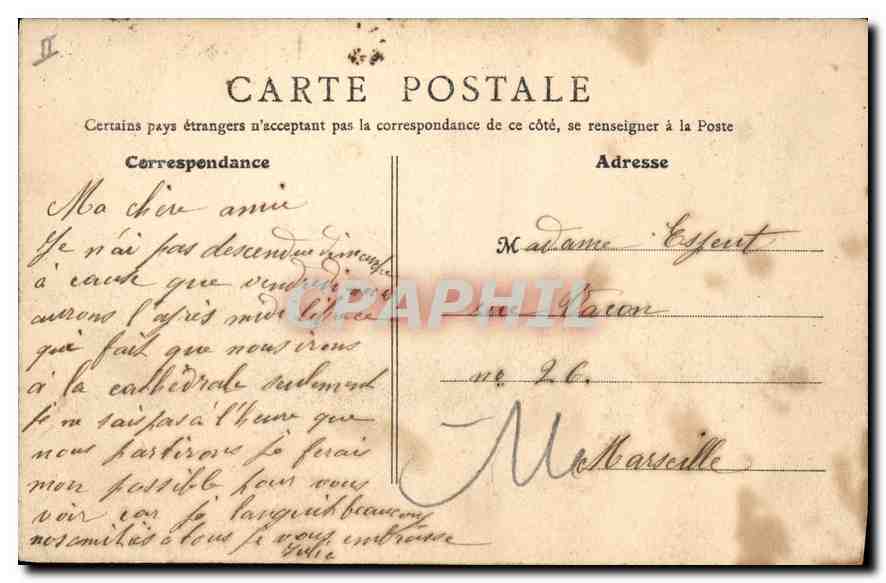 II
CARTE POSTALE
Certains pays étrangers n'acceptant pas la correspondance de ce côté, se renseigner à la Poste
Correspondance
Ma chère amie
Je n'ai pas descendue dimanche
à cause que vendredi nous
aurons l'après midi libre ce
qui fait que nous irons
à la cathédrale seulement
je ne sais pas à l'heure que
nous partirons je ferais
mon possible pour vous
voir car je languit beaucoup
nos amitiés a tous je vous embrasse
Julie
Adresse
Madame
rue Vacon
no 26.
Marseille
CPAPHIL